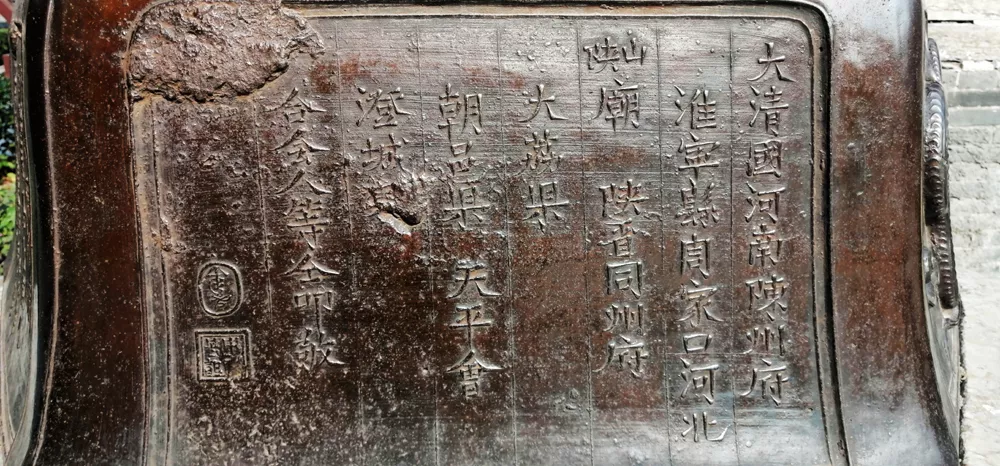 大清國河南陳州府
淮寧縣周家口河北
山陝廟 陝省同州府
大荔県
朝邑県 天平會
澄城
合會人等仝叩敬